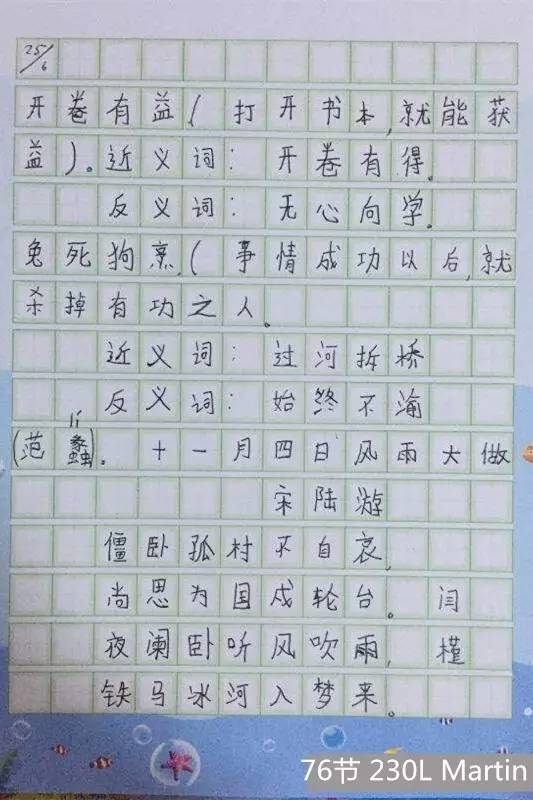 25/6
开卷有益(打开书本,就能获
益)。近义词:开卷有得。
反义词:无心向学。
兔死狗烹(事情成功以后,就
杀掉有功之人。
近义词:过河拆桥
反义词:始终不渝
(范蠡)。十一月四日风雨大做
宋陆游
僵卧孤村不自哀,
尚思为国戍轮台。闫
夜阑卧听风吹雨,槿
铁马冰河入梦来。
76节 230L Martin